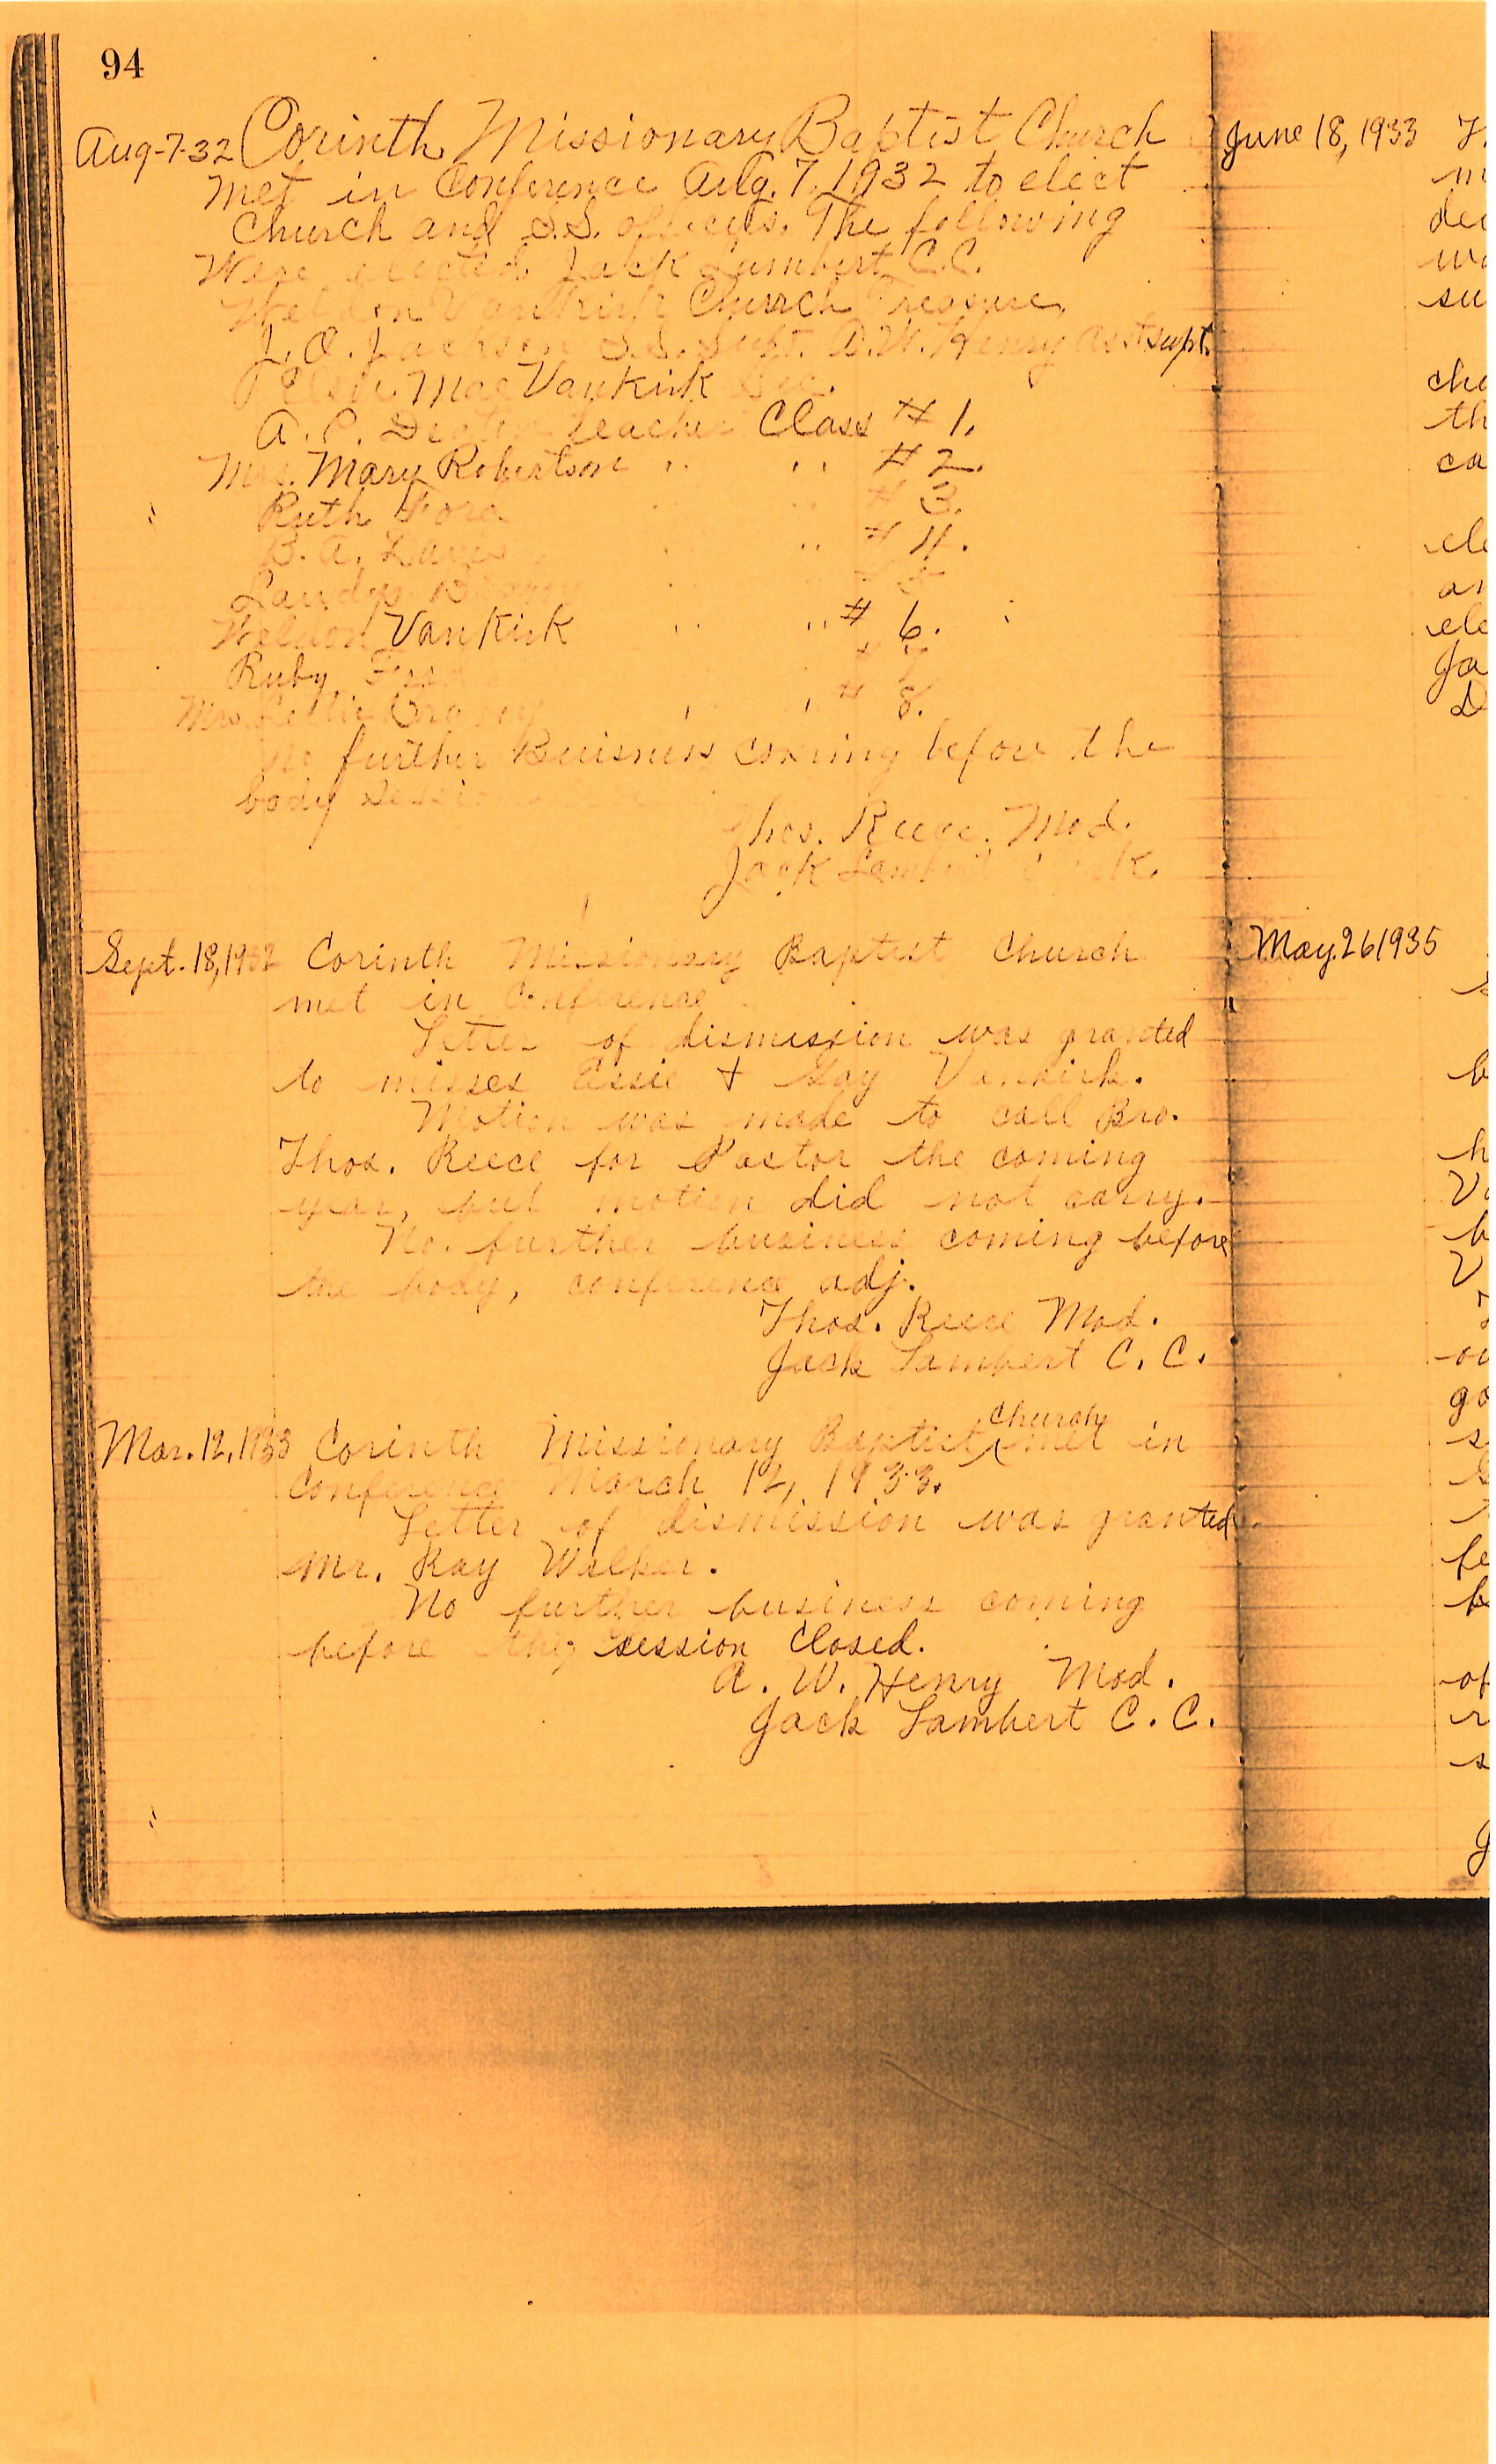 94
Aug-7-32 Corinth Missionary Baptist Church
Met in Conference Aug. 7, 1932 to elect
Church and S.S. officers. The following
Were elected. Jack Lambert C.C.
Weldon VanKirk Church Treasure.
J. O. Jackson S.S. Supt. A.W. Henry Asst supt.
Mae VanKirk Sec.
A. P. teacher Class # 1.
Mrs. Mary Robertson " " # 2.
Ruth Ford # 3.
B. A. Davis " # 4.
5
Weldon VanKirk " " # 6.
Ruby # 7
Mrs. " " # 8.
No further Buisness coming before the
body session
Thos. Reece. Mod.
Jack Lambert Clerk.
Sept. 18, 1932 Corinth Missionary Baptist Church
met in Conference
Letter of dismission was granted
to misses Essie & Gay Vankirk.
Motion was made to call Bro.
Thos. Reece for Pastor the coming
year, but motion did not carry.
No. further business coming before
the body, conference adj.
Thos. Reece Mod.
Jack Lambert C. C.
Mar. 12, 1933 Corinth Missionary Baptist church met in
Conference March 12, 1933.
Letter of dismission was granted
Mr. Ray Walker.
No further business coming
before the session closed.
A. W. Henry Mod.
Jack Lambert C. C.
June 18, 1933
su
cho
th
ca
ele
ele
Ja
May 26 1935
go